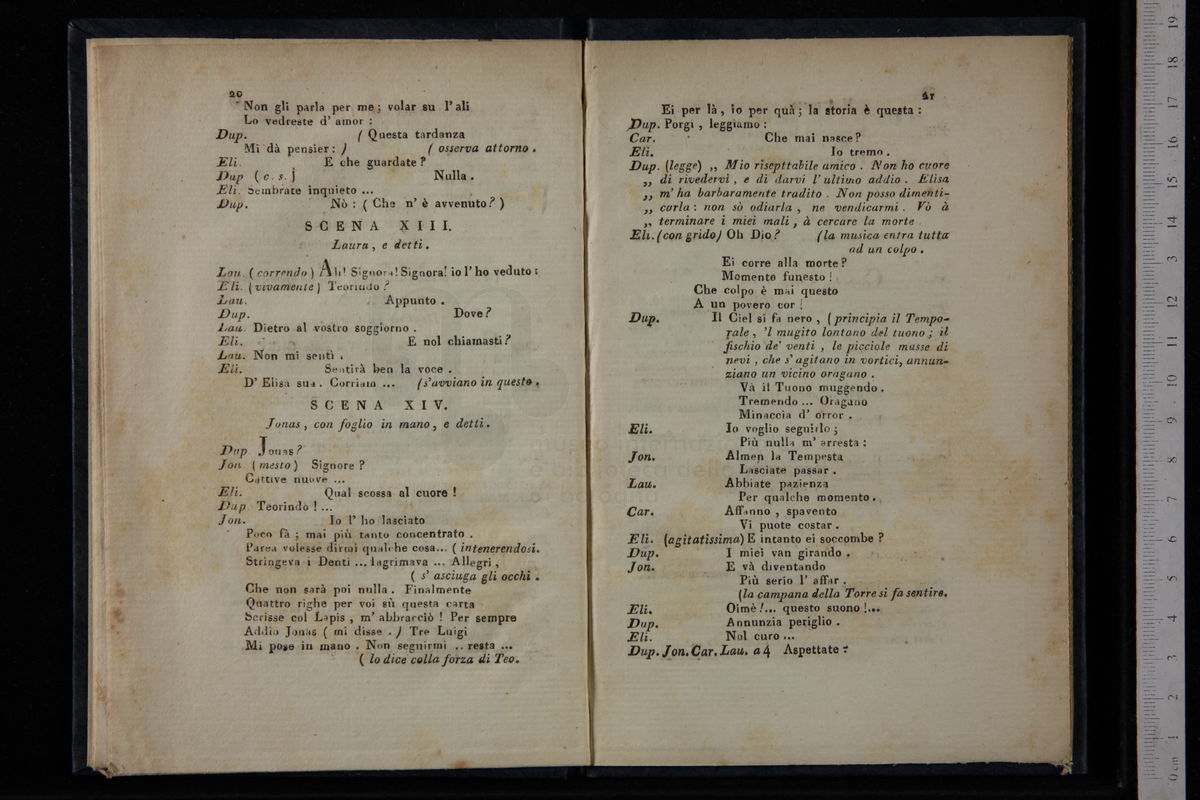 20
Non gli parla per me; volar su l'ali
Lo vedreste d'amor :
Dup. ( Questa tardanza
Mi dà pensier: ) ( osserva attorno .
Eli. E che guardate ?
Dup ( c. s. ) Nulla .
Eli. Sembrate inquieto ...
Dup. Nò : ( Che n' è avvenuto ? )
SCENA XIII.
Laura , e detti .
Lau. ( correndo ) Ah! Signora! Signora! io l'ho veduto :
Eli. ( vivamente ) Teorindo ?
Lau. Appunto .
Dup. Dove ?
Lau. Dietro al vostro soggiorno .
Eli. E nol chiamasti ?
Lau. Non mi sentì .
Eli. Sentirà ben la voce .
D' Elisa sua . Corriam ... (s'avviano in questo .
SCENA XIV.
Jonas , con foglio in mano , e detti .
Dup Jonas ?
Jon ( mesto ) Signore ?
Cattive nuove ...
Eli. Qual scossa al cuore !
Dup Teorindo ! ...
Jon. Io l' ho lasciato
Poco fà ; mai più tanto concentrato .
Parea volesse dirmi qualche cosa... ( intenerendosi.
Stringeva i Denti ... lagrimava ... Allegri ,
( s' asciuga gli occhi .
Che non sarà poi nulla . Finalmente
Quattro righe per voi sù questa carta
Scrisse col Lapis , m' abbracciò ! Per sempre
Addio Jonas ( mi disse . ) Tre Luigi
Mi pose in mano . Non seguirmi .. resta ...
( lo dice colla forza di Teo.
21
Ei per là , io per quà ; la storia è questa :
Dup. Porgi , leggiamo :
Car. Che mai nasce ?
Eli. Io tremo .
Dup. (legge) ,, Mio risepttabile amico . Non ho cuore
,, di rivedervi , e di darvi l' ultimo addio . Elisa
,, m' ha barbaramente tradito . Non posso dimenti-
,, carla : non sò odiarla , ne vendicarmi . Vò à
,, terminare i miei mali , à cercare la morte .
Eli. (con grido) Oh Dio ? (la musica entra tutta
ad un colpo .
Ei corre alla morte ?
Momento funesto !
Che colpo è mai questo
A un povero cor !
Dup. Il Ciel si fa nero , ( principia il Tempo-
rale , 'l mugito lontano del tuono ; il
fischio de' venti , le picciole masse di
nevi , che s' agitano in vortici, annun-
ziano un vicino oragano .
Và il Tuono muggendo .
Tremendo ... Oragano
Minaccia d' orror .
Eli. Io voglio seguirlo ;
Più nulla m' arresta :
Jon. Almen la Tempesta
Lasciate passar .
Lau. Abbiate pazienza
Per qualche momento .
Car. Affanno , spavento
Vi puote costar .
Eli. (agitatissima) E intanto ei soccombe ?
Dup. I miei van girando .
Jon. E và diventando
Più serio l' affar .
(la campana della Torre si fa sentire.
Eli. Oimè !... questo suono !...
Dup. Annunzia periglio .
Eli. Nol curo ...
Dup. Jon. Car. Lau. a 4 Aspettate :